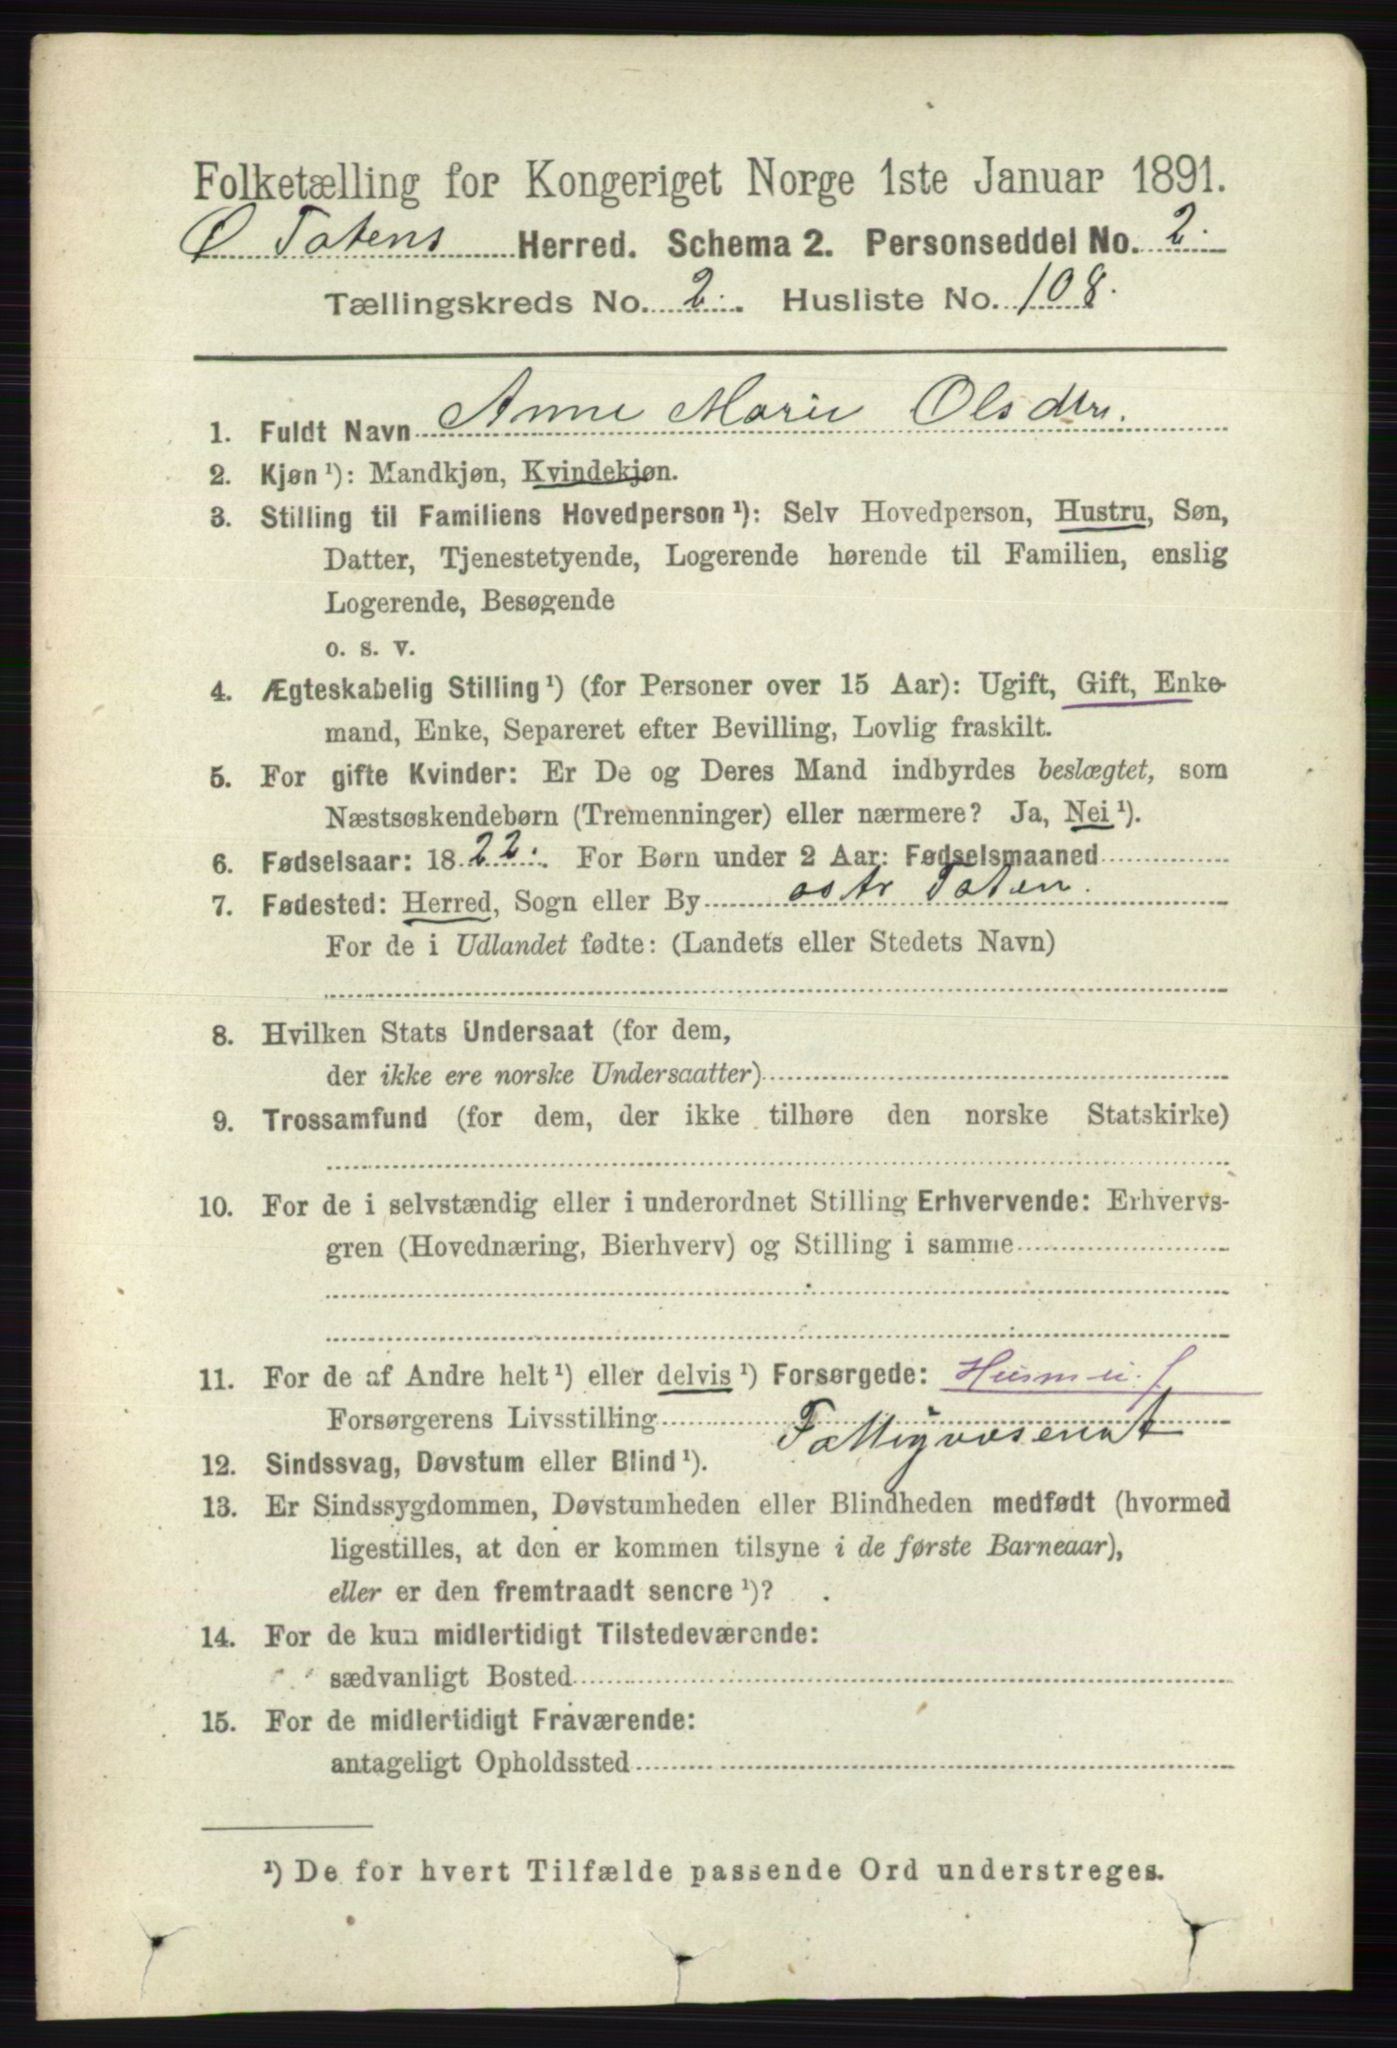 Folketælling for Kongeriget Norge 1ste Januar 1891.
Ø Totens Herred. Schema 2. Personseddel No. 2.
Tællingskreds No. 2. Husliste No. 108.
1. Fuldt Navn Anne Marie Olsdtr.
2. Kjøn ¹): Mandkjøn, Kvindekjøn.
3. Stilling til Familiens Hovedperson ¹): Selv Hovedperson, Hustru, Søn,
Datter, Tjenestetyende, Logerende hørende til Familien, enslig
Logerende, Besøgende
o. s. v.
4. Ægteskabelig Stilling ¹) (for Personer over 15 Aar): Ugift, Gift, Enke-
mand, Enke, Separeret efter Bevilling, Lovlig fraskilt.
5. For gifte Kvinder: Er De og Deres Mand indbyrdes beslægtet, som
Næstsøskendebørn (Tremenninger) eller nærmere? Ja, Nei ¹).
6. Fødselsaar: 1822. For Børn under 2 Aar: Fødselsmaaned
7. Fødested: Herred, Sogn eller By østr Toten.
For de i Udlandet fødte: (Landets eller Stedets Navn)
8. Hvilken Stats Undersaat (for dem,
der ikke ere norske Undersaatter)
9. Trossamfund (for dem, der ikke tilhøre den norske Statskirke)
10. For de i selvstændig eller i underordnet Stilling Erhvervende: Erhvervs-
gren (Hovednæring, Bierhverv) og Stilling i samme
11. For de af Andre helt ¹) eller delvis ¹) Forsørgede:
Forsørgerens Livsstilling Fattigvæsenet
12. Sindssvag, Døvstum eller Blind ¹).
13. Er Sindssygdommen, Døvstumheden eller Blindheden medfødt (hvormed
ligestilles, at den er kommen tilsyne i de første Barneaar),
eller er den fremtraadt senere ¹)?
14. For de kun midlertidigt Tilstedeværende:
sædvanligt Bosted
15. For de midlertidigt Fraværende:
antageligt Opholdssted
¹) De for hvert Tilfælde passende Ord understreges.